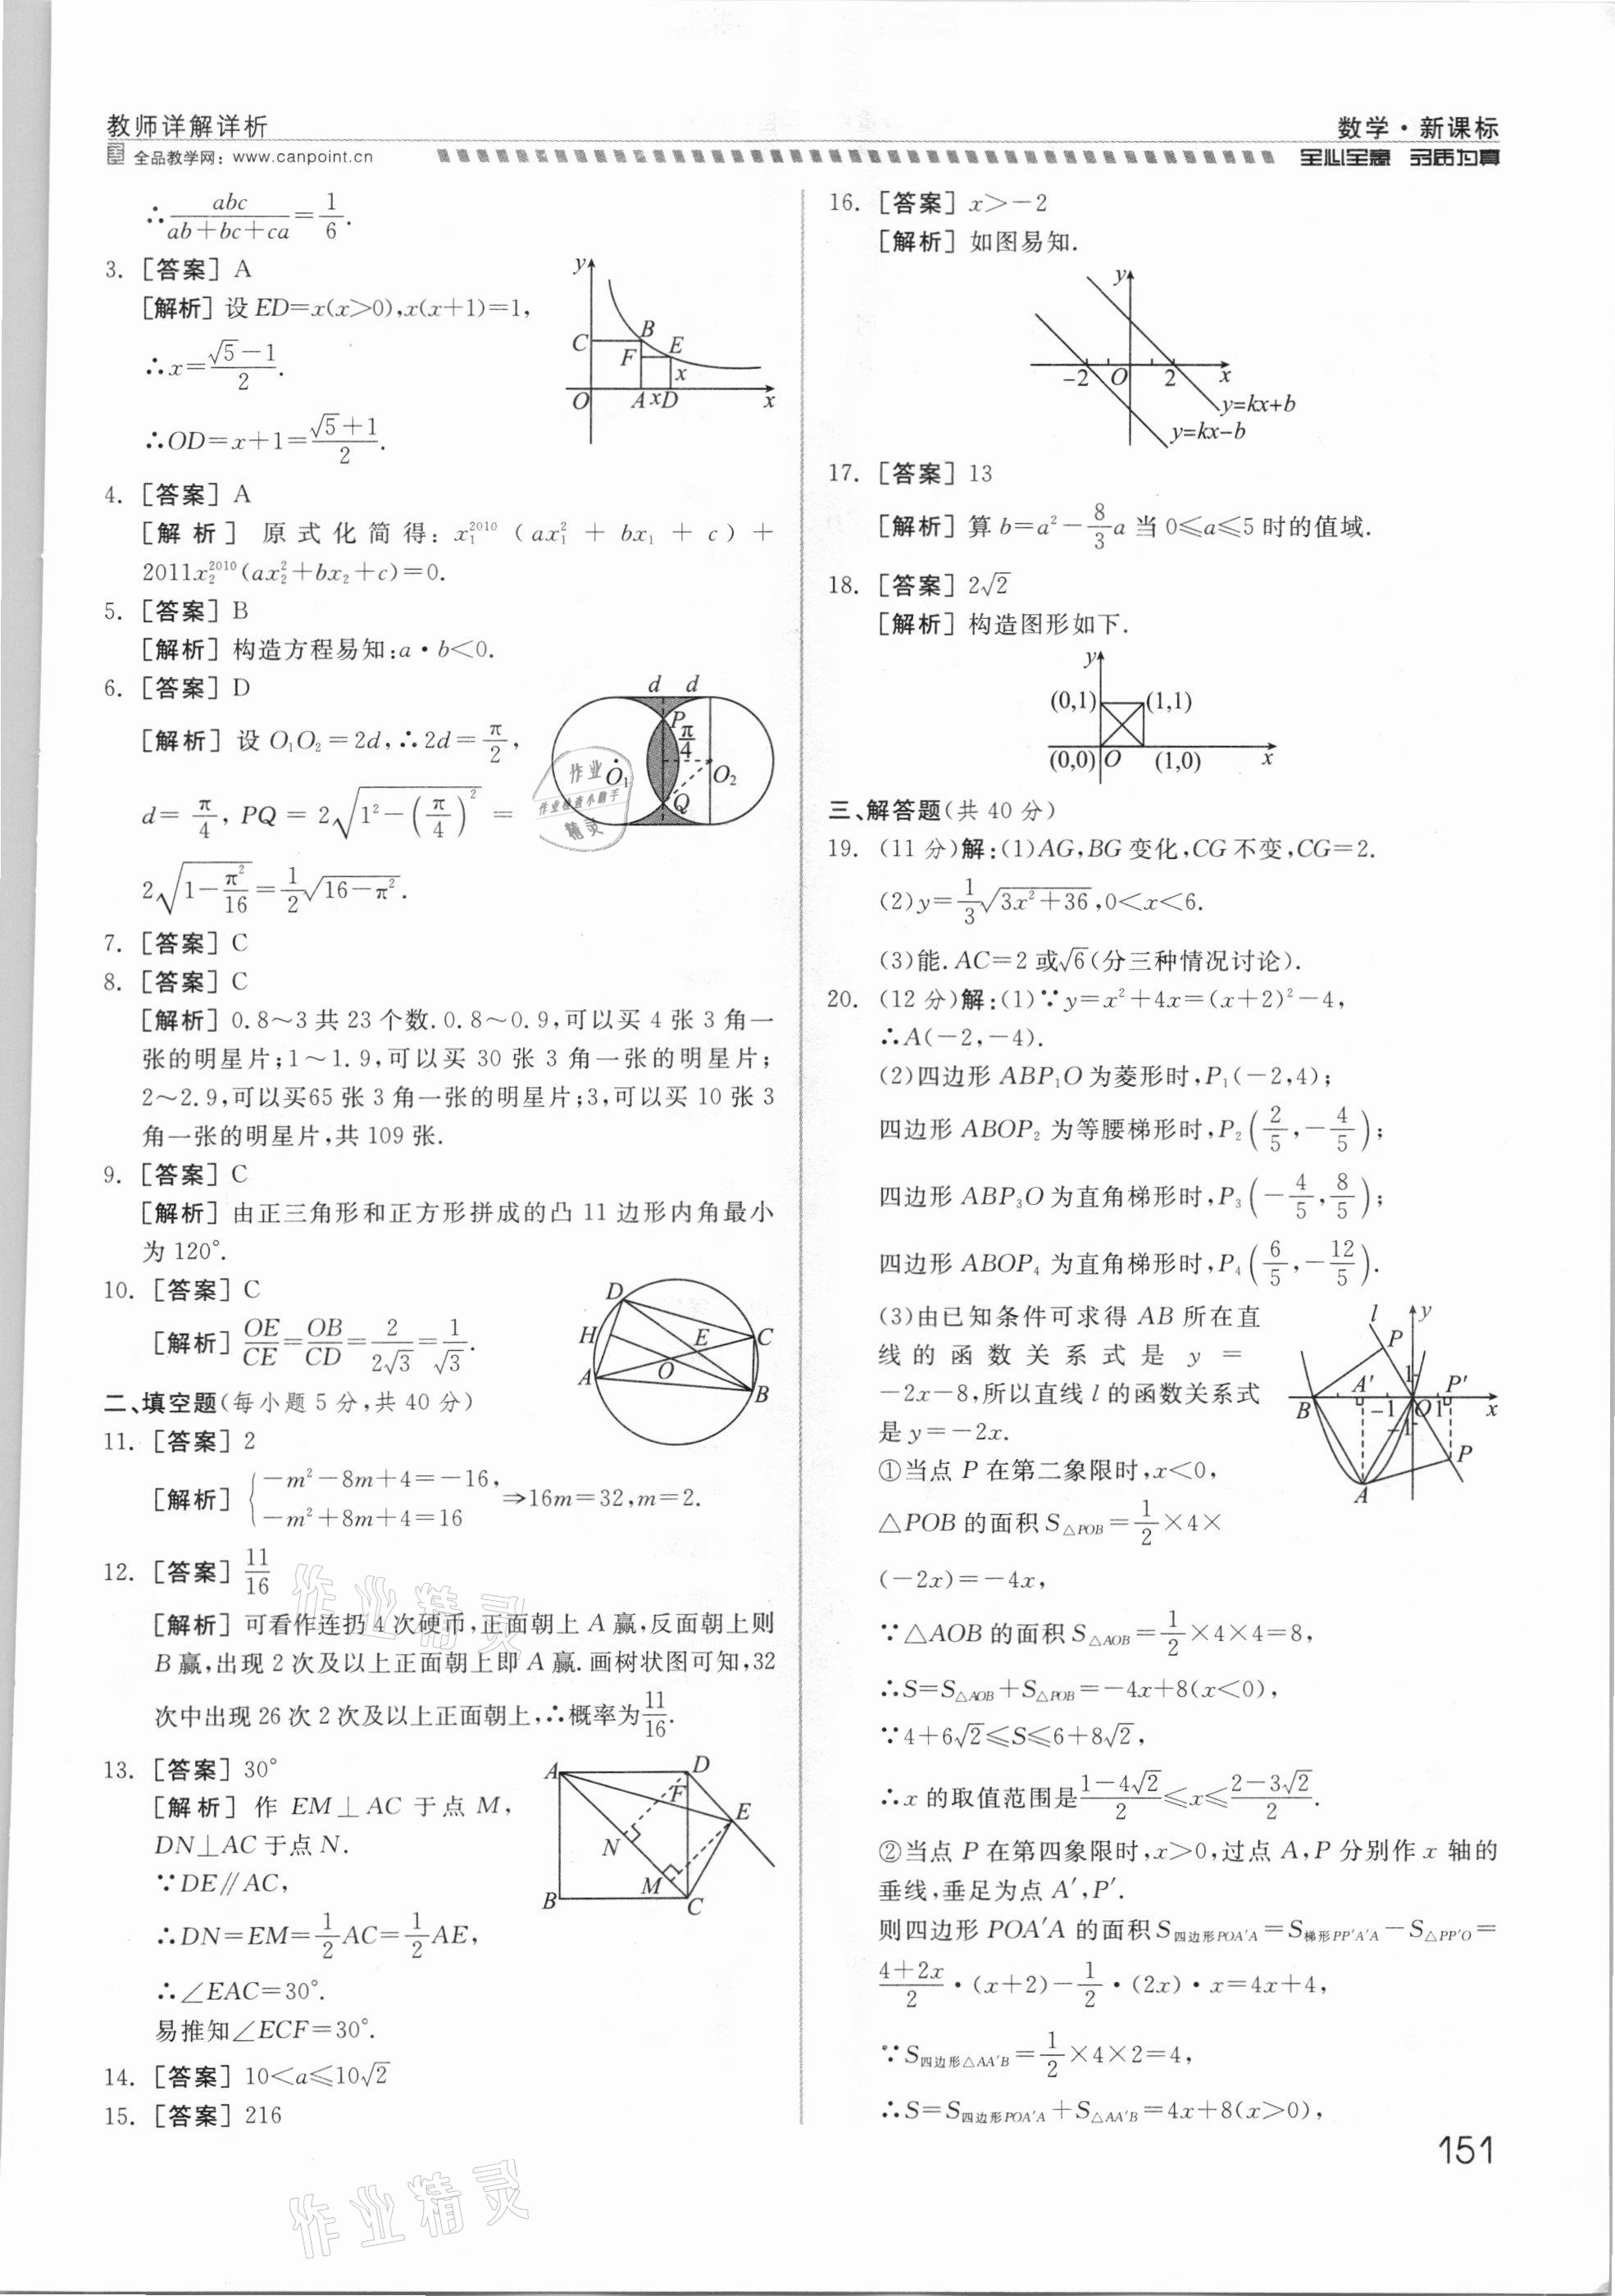 教师详解详析
数学·新课标
全品教学网：www.canpoint.cn
全心全意 品质为真
∴abc/(ab+bc+ca)=1/6.
3. [答案] A
[解析] 设 ED=x(x>0),x(x+1)=1,
∴x=(√5-1)/2.
∴OD=x+1=(√5+1)/2.
y
C
B
F
E
x
O
A
x
D
x
4. [答案] A
[解析] 原式化简得: x₁²⁰¹⁰ (ax₁² + bx₁ + c) +
2011x₂²⁰¹⁰(ax₂²+bx₂+c)=0.
5. [答案] B
[解析] 构造方程易知:a·b<0.
6. [答案] D
[解析] 设 O₁O₂=2d,∴2d=π/2,
d=π/4, PQ=2√(1²-(π/4)²)=
2√(1-π²/16)=1/2√(16-π²).
d d
P
π/4
O₁
O₂
Q
7. [答案] C
8. [答案] C
[解析] 0.8～3 共 23 个数.0.8～0.9,可以买 4 张 3 角一
张的明星片;1～1.9,可以买 30 张 3 角一张的明星片;
2～2.9,可以买65 张 3 角一张的明星片;3,可以买 10 张 3
角一张的明星片,共 109 张.
9. [答案] C
[解析] 由正三角形和正方形拼成的凸 11 边形内角最小
为 120°.
10. [答案] C
[解析] OE/CE=OB/CD=2/(2√3)=1/√3.
D
H
E
C
A
O
B
二、填空题(每小题 5 分,共 40 分)
11. [答案] 2
[解析] {-m²-8m+4=-16,
-m²+8m+4=16 ⇒16m=32,m=2.
12. [答案] 11/16
[解析] 可看作连扔 4 次硬币,正面朝上 A 赢,反面朝上则
B 赢,出现 2 次及以上正面朝上即 A 赢.画树状图可知,32
次中出现 26 次 2 次及以上正面朝上,∴概率为11/16.
13. [答案] 30°
[解析] 作 EM⊥AC 于点 M,
DN⊥AC 于点 N.
∵DE∥AC,
∴DN=EM=1/2AC=1/2AE,
∴∠EAC=30°.
易推知∠ECF=30°.
A
D
F
E
N
M
B
C
14. [答案] 10<a≤10√2
15. [答案] 216
16. [答案] x>-2
[解析] 如图易知.
y
-2
O
2
x
y=kx+b
y=kx-b
17. [答案] 13
[解析] 算 b=a²-8/3a 当 0≤a≤5 时的值域.
18. [答案] 2√2
[解析] 构造图形如下.
y
(0,1)
(1,1)
(0,0)
O
(1,0)
x
三、解答题(共 40 分)
19. (11 分)解:(1)AG,BG 变化,CG 不变,CG=2.
(2)y=1/3√(3x²+36),0<x<6.
(3)能.AC=2 或√6(分三种情况讨论).
20. (12 分)解:(1)∵y=x²+4x=(x+2)²-4,
∴A(-2,-4).
(2)四边形 ABP₁O 为菱形时,P₁(-2,4);
四边形 ABOP₂ 为等腰梯形时,P₂(2/5,-4/5);
四边形 ABP₃O 为直角梯形时,P₃(-4/5,8/5);
四边形 ABOP₄ 为直角梯形时,P₄(6/5,-12/5).
(3)由已知条件可求得 AB 所在直
线的函数关系式是 y =
-2x-8,所以直线 l 的函数关系式
是 y=-2x.
①当点 P 在第二象限时,x<0,
△POB 的面积 S△POB=1/2×4×
(-2x)=-4x,
l
y
P
A′
1
P′
B
-1
O
1
x
-1
P
A
∵△AOB 的面积 S△AOB=1/2×4×4=8,
∴S=S△AOB+S△POB=-4x+8(x<0),
∵4+6√2≤S≤6+8√2,
∴x 的取值范围是(1-4√2)/2≤x≤(2-3√2)/2.
②当点 P 在第四象限时,x>0,过点 A,P 分别作 x 轴的
垂线,垂足为点 A′,P′.
则四边形 POA′A 的面积 S四边形POA′A=S梯形PP′A′A-S△PP′O=
(4+2x)/2·(x+2)-1/2·(2x)·x=4x+4,
∵S四边形△AA′B=1/2×4×2=4,
∴S=S四边形POA′A+S△AA′B=4x+8(x>0),
151
作业
作业检查小助手
精灵
作业精灵
作业精灵